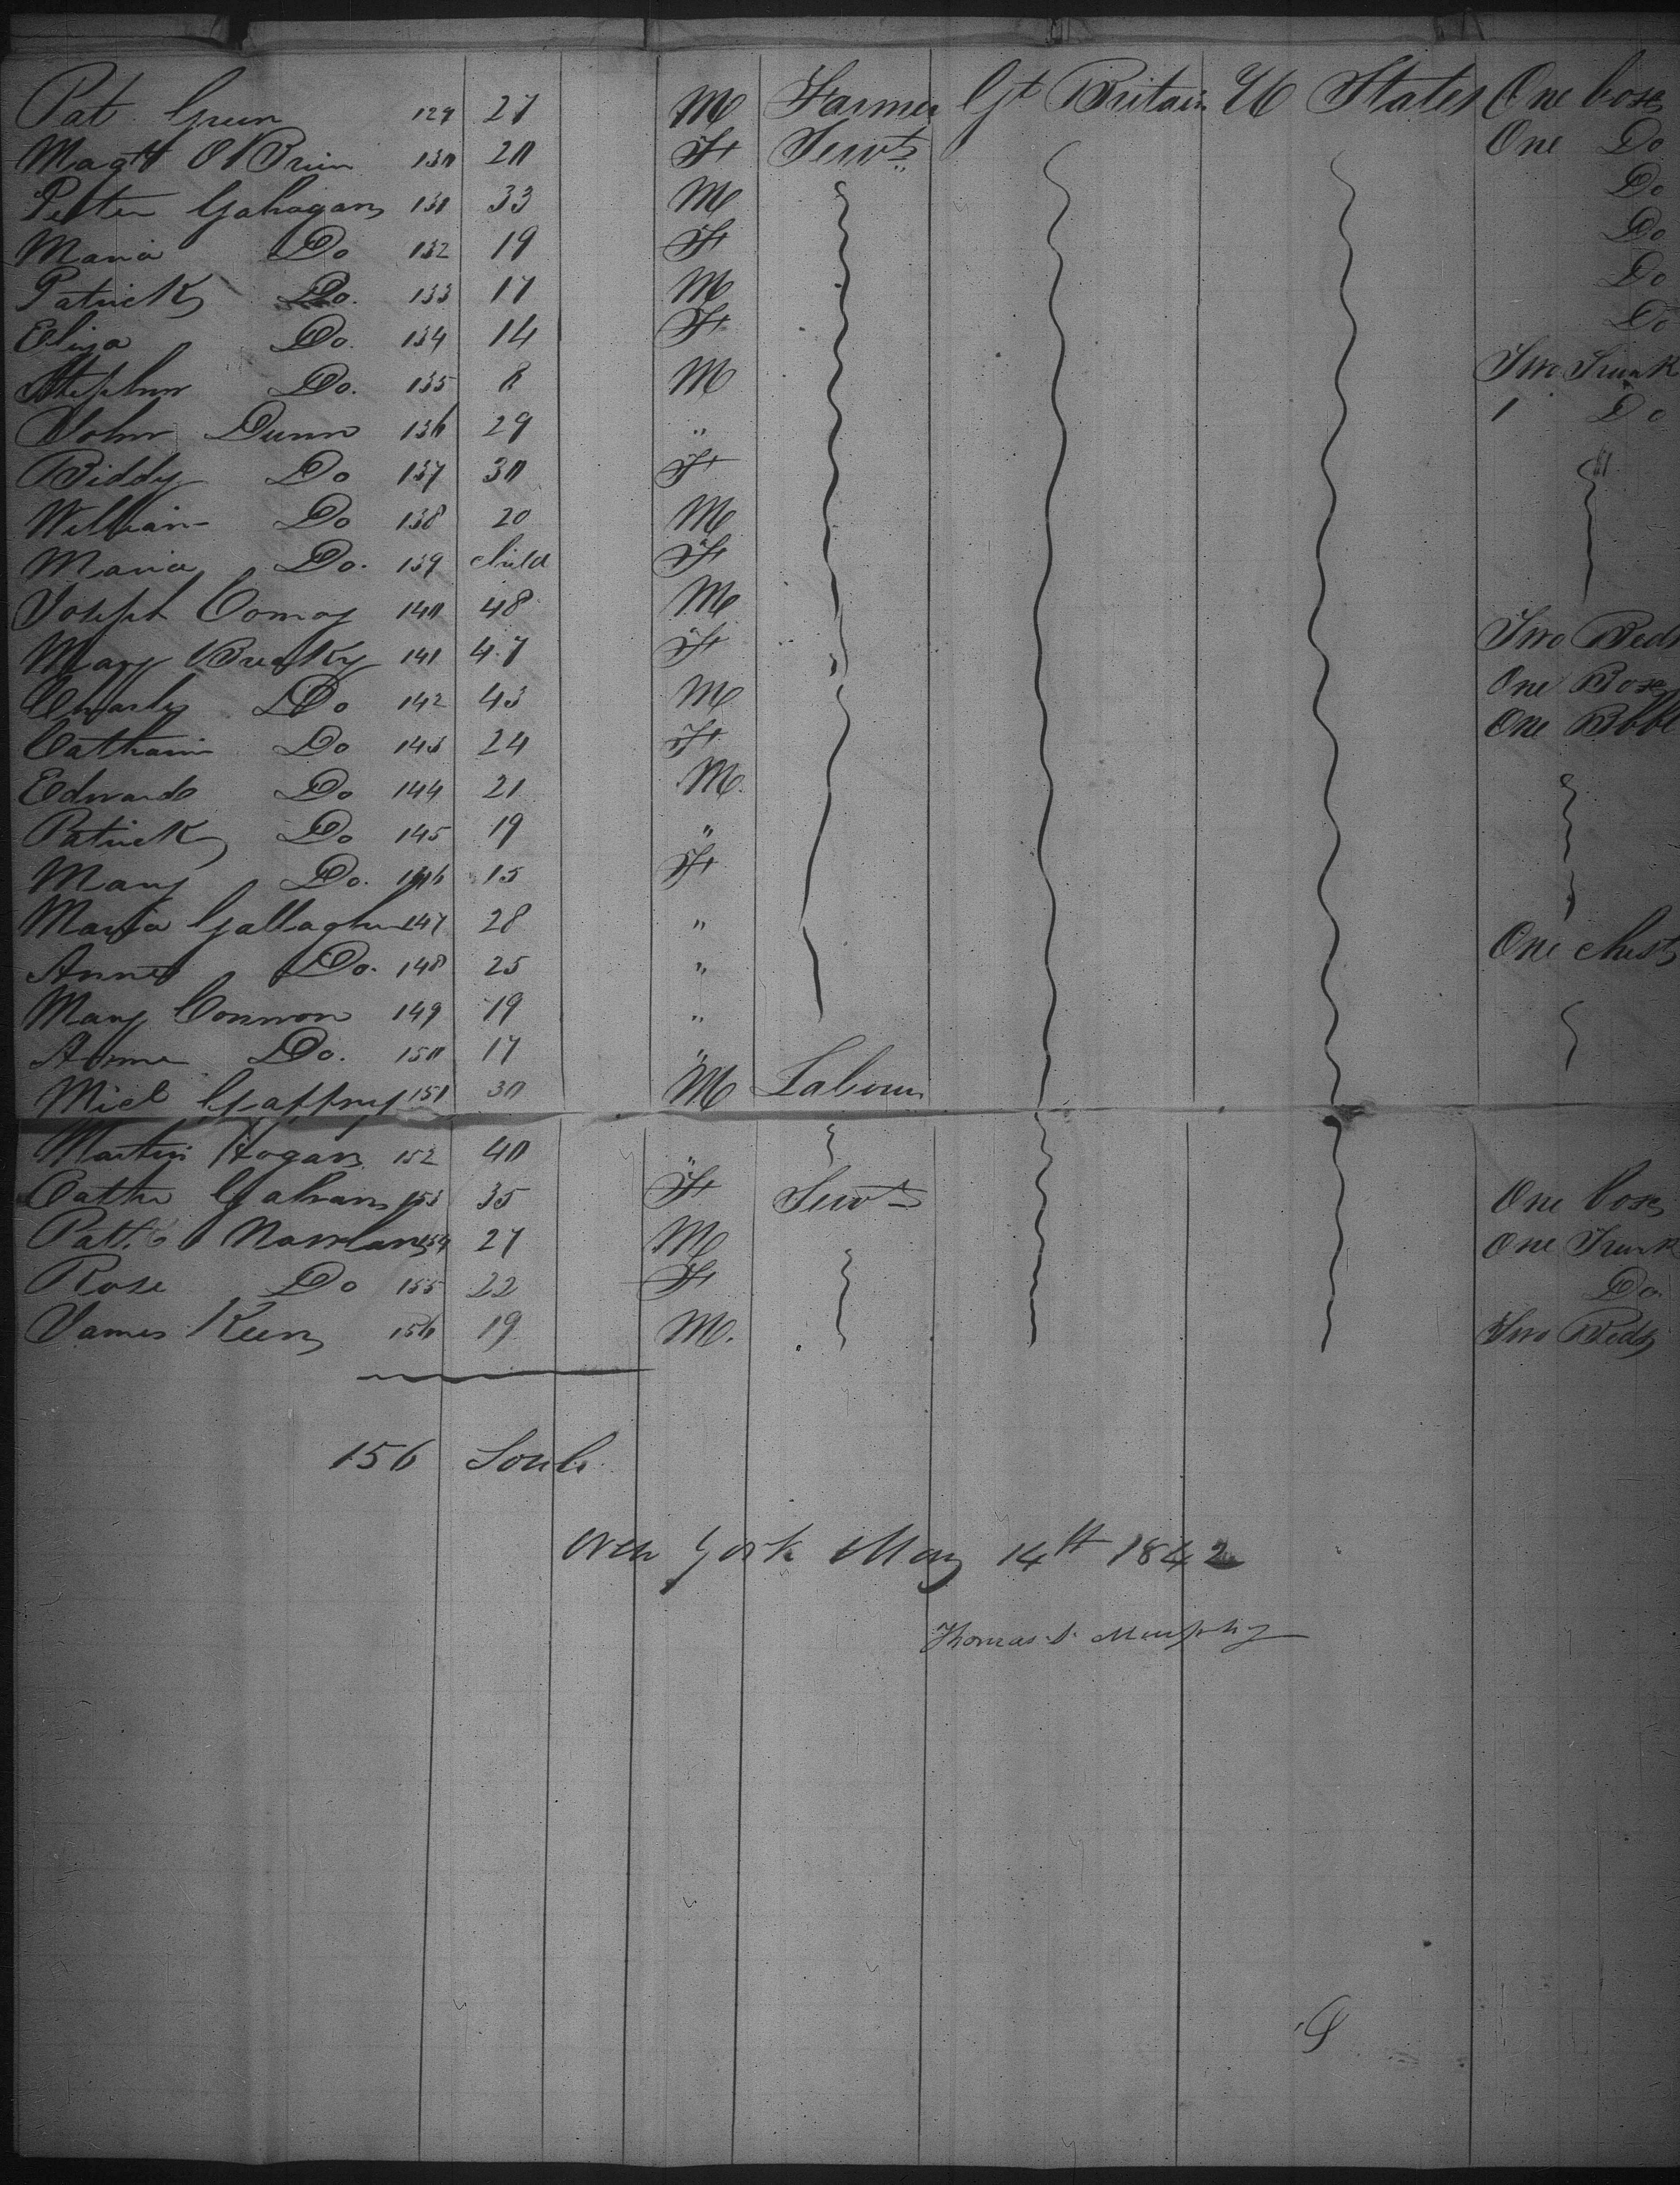 Pat Green 129 27 M Farmer Gt Britain U States One box
Magt O'Brien 130 20 F Servts One Do
Peter Gahagan 131 33 M Do
Maria Do 132 19 F Do
Patrick Do. 133 17 M Do
Eliza Do. 134 14 F Do
Stephen Do. 135 8 M Two Trunk
John Dunn 136 29 " 1 Do
Biddy Do 137 30 F
William Do 138 20 M
Maria Do. 139 child F
Joseph Comoy 140 48 M Two Beds
Mary 141 47 F One Box
Charles Do 142 43 M One
Catharin Do 143 24 F
Edward Do 144 21 M.
Patrick Do 145 19 "
Mary Do. 146 15 F
Maria Gallagher 147 28 " One chest
Anne Do. 148 25 "
Mary Connon 149 19 "
Anne Do. 150 17 "
Micl Gaffney 151 30 M Labour
Martin Hogan 152 40 "
Cathe Gahan 153 35 F Servts One box
Patk Nowlan 154 27 M One Trunk
Rose Do 155 22 F Do.
James Keen 156 19 M. Two Beds
156 Souls
New York May 14th 1842
Thomas S. Murphy